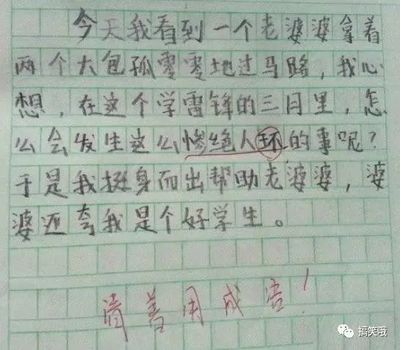 今天我看到一个老婆婆拿着
两个大包孤零零地过马路，我心
想，在这个学雷锋的三月里，怎
么会发生这么惨绝人环的事呢？
于是我挺身而出帮助老婆婆，婆
婆还夸我是个好学生。
请善用成语！
搞笑哦